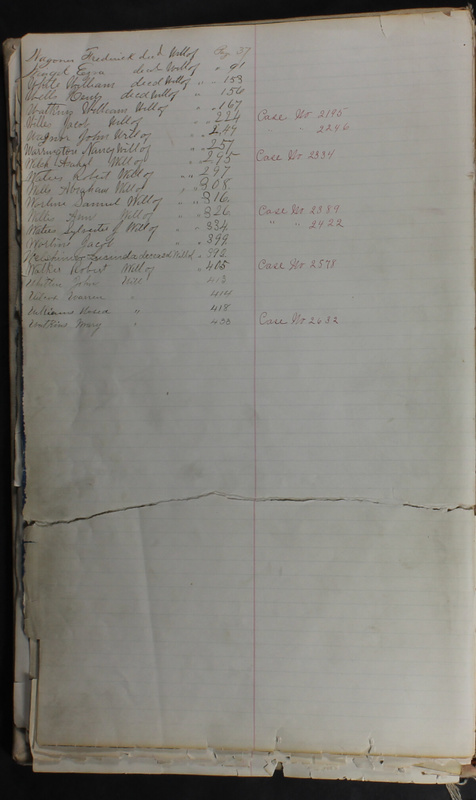 Wagoner Frederick decd Will of Pg 37
Ezra decd Will of " 91
White William decd Will of " " 153
Wells decd Will of " " 156
Watkins William Will of " " 167
Willis Jacob Will of " " 234 Case No 2195
Wagner John Will of " " 249 " " 2296
Warrington Nancy Will of " " 257
Welch Will of " " 295 Case No 2334
Waters Robert Will of " " 297
Wells Abraham Will of " " 308
Samuel Will of " " 316
Willis Will of " " 326 Case No 2389
Waters Sylvester Will of " " 334 " " 2422
Jacob " " 399
Lucinda deceased Will of " 392
Walker Robert Will of " 405 Case No 2578
John Will 413
Warren " 414
Williams " 418
Watkins Mary " 433 Case No 2632